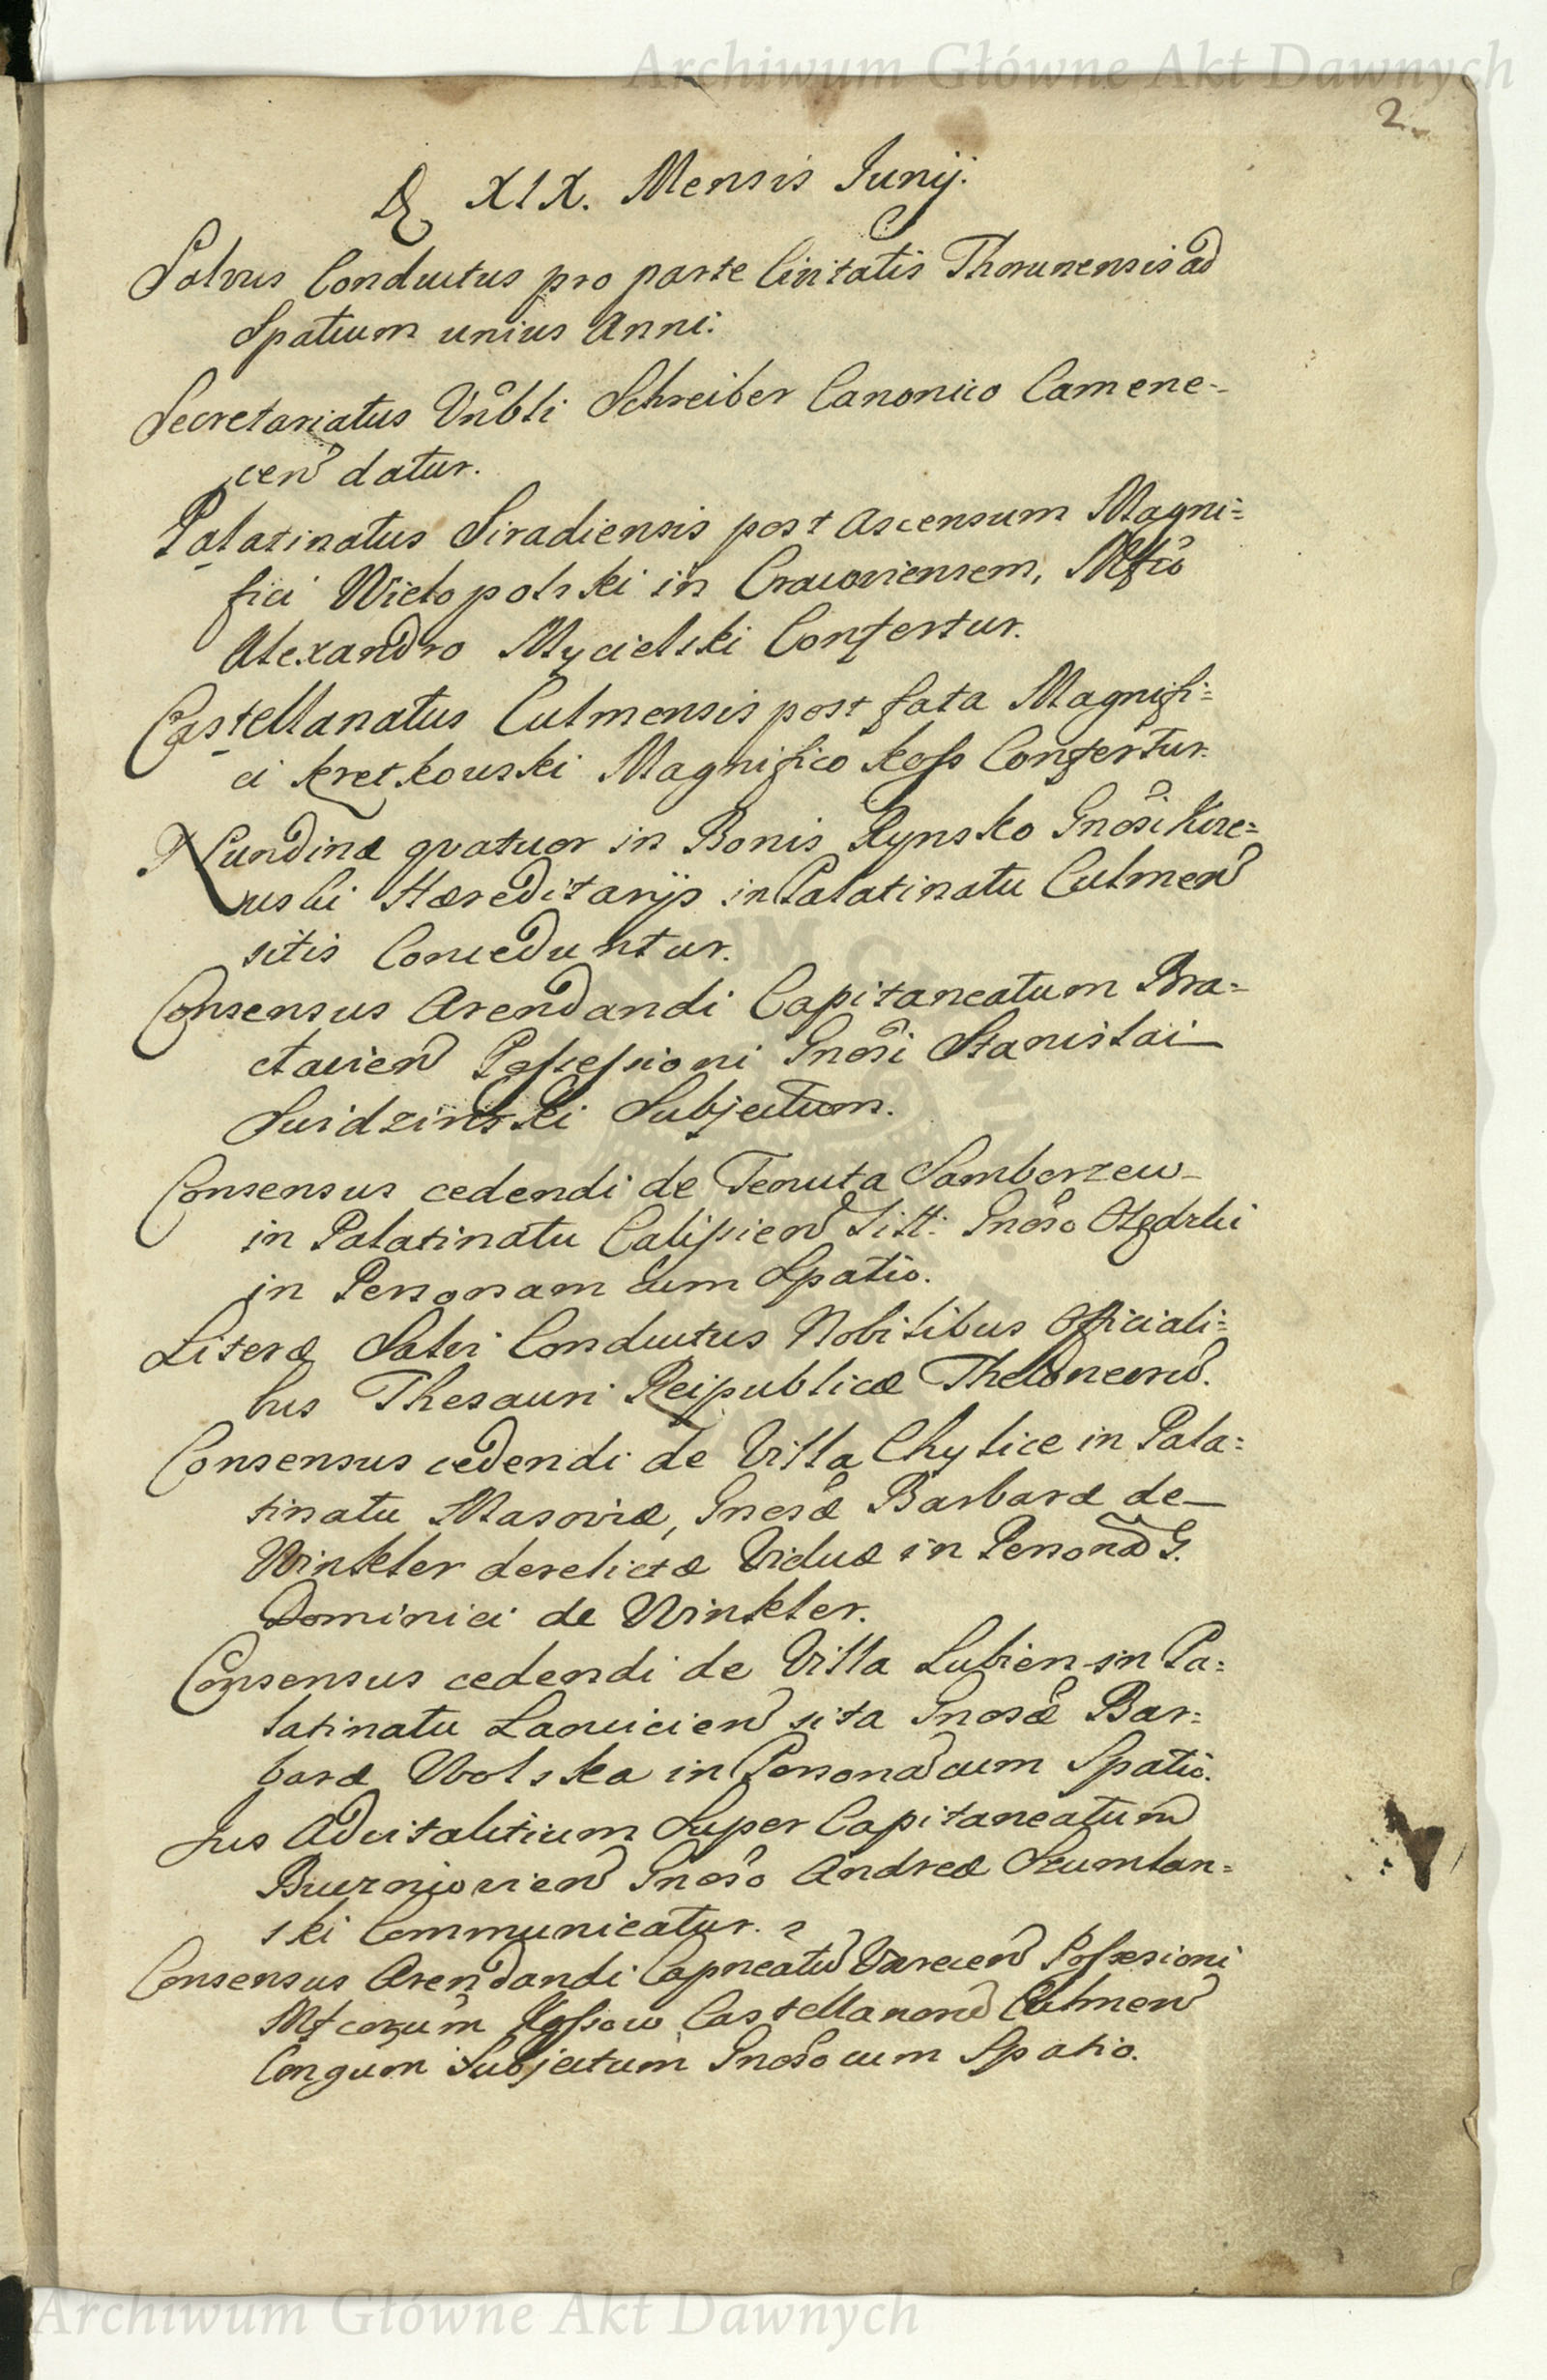 Archiwum Główne Akt Dawnych
2.
D. XIX. Mensis Junij.
Salvus Conductus pro parte Civitatis Thorunensis ad
Spatium unius Anni.
Secretariatus Vnbli Schreiber Canonico Camene-
cen datur.
Palatinatus Siradiensis post Ascensum Magni=
fici Wielopolski in Cracoviensem, Mfco
Alexandro Mycielski Confertur.
Castellanatus Culmensis post fata Magnifi=
ci Kretkowski Magnifico Koss Confertur.
Nundinæ quatuor in Bonis Rynsko Gnosi
Hæreditarijs in Palatinatu Culmen
sitis Conceduntur.
Consensus Arendandi Capitaneatum Bra=
clavien Possessioni Gnosi Stanislai
Swidzinski Subjectum.
Consensus cedendi de Tenuta Samborzew
in Palatinatu Calissien Sitt: Gnoso Olędzki
in Personam cum Spatio.
Literæ Salvi Conductus Nobilibus Officiali=
bus Thesauri Reipublicæ
Consensus cedendi de Villa Chylice in Pala=
tinatu Masoviæ, Gnosæ Barbaræ de
Winkler derelictæ Viduæ in Persona G.
Dominici de Winkler.
Consensus cedendi de Villa Lubien in Pa=
latinatu Lancicien sita Gnosæ Bar=
baræ Wolska in Persona cum Spatio.
Jus Advitalitium Super Capitaneatum
Gnoso Andreæ Szumlan=
ski Communicatur.
Consensus Arendandi Capneatu Possesioni
Mfcorum Kossow Castellanoru Culmen
Congum Subjectum Gnoso cum Spatio.
Archiwum Główne Akt Dawnych